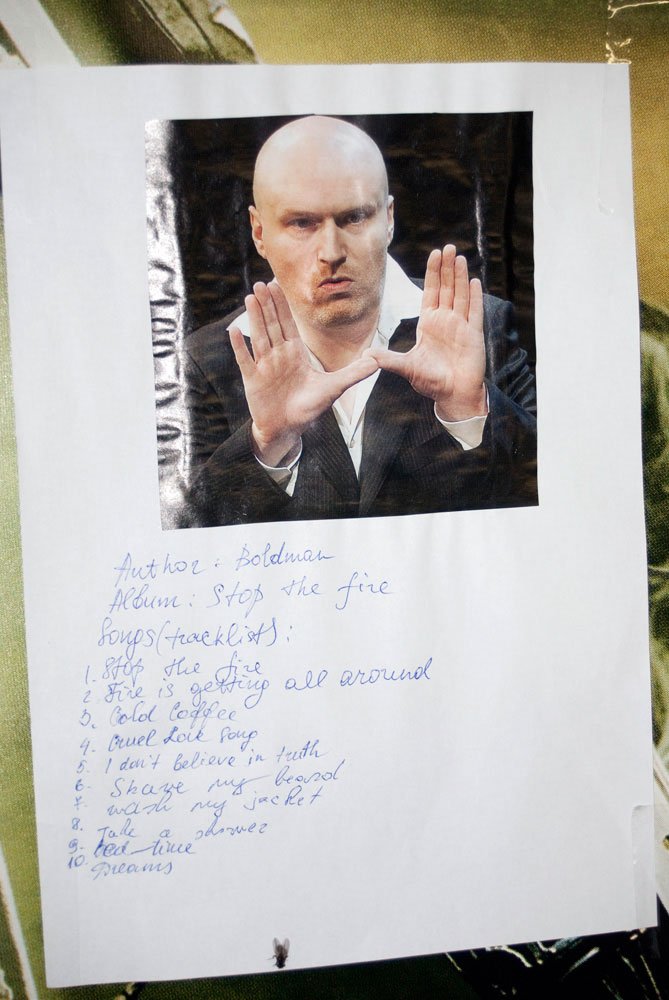 Author: Boldman
Album: Stop the fire
Songs(tracklist):
1. Stop the fire
2. Fire is getting all around
3. Cold Coffee
4. Cruel Love Song
5. I don't believe in truth
6. Shave my beard
7. wash my jacket
8. Take a shower
9. Bed-time
10. Dreams